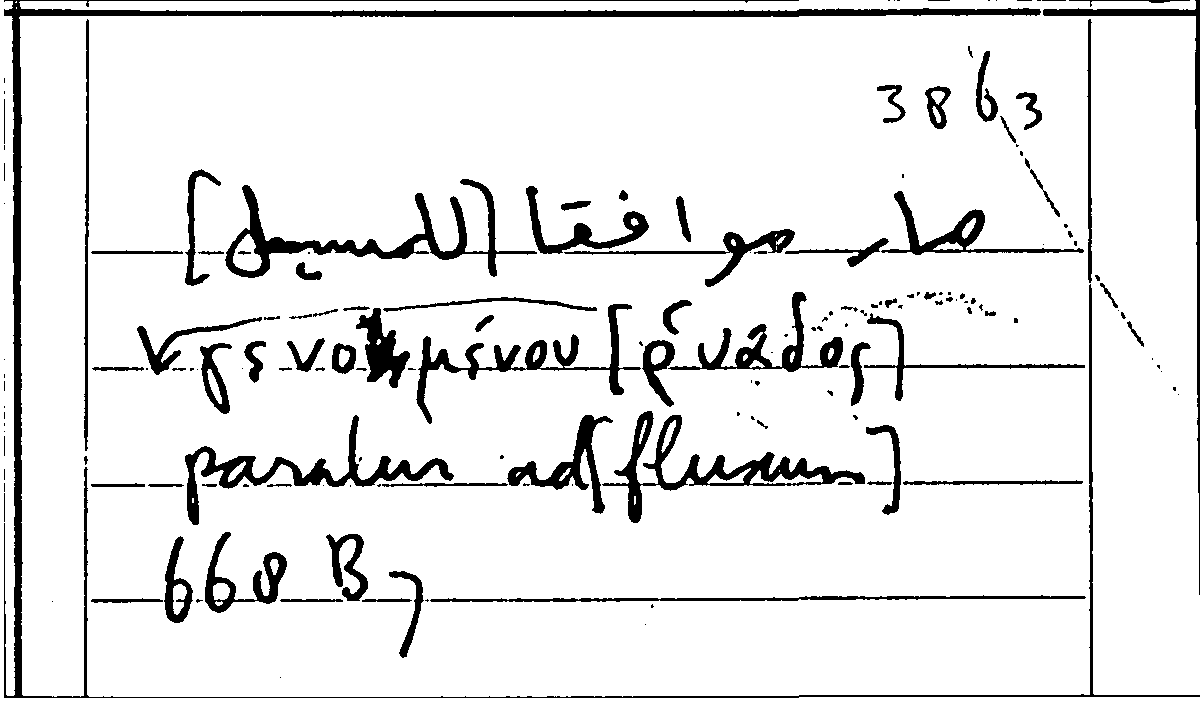 3863
صار موافقا [للمسيل]
γενομένου [ρυάδος]
paratur ad [fluxum]
668 B 7